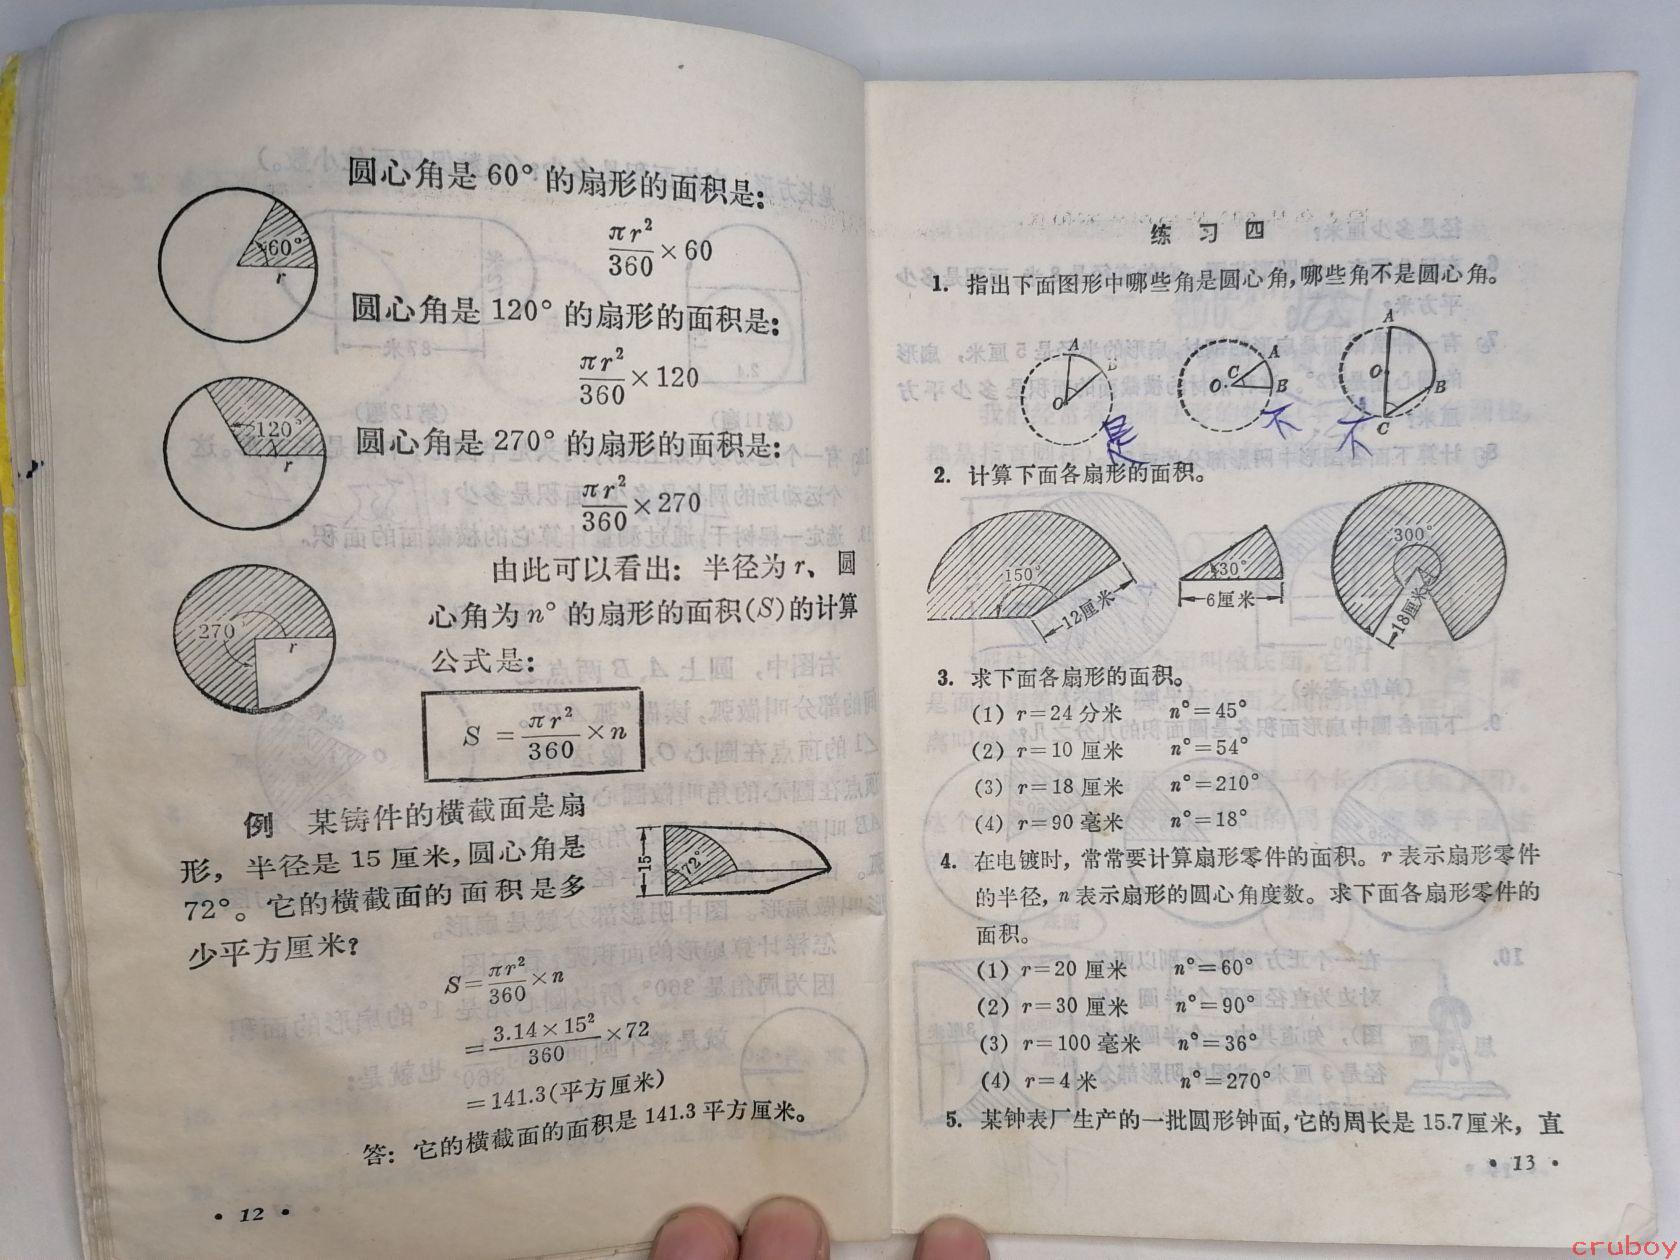 圆心角是 60° 的扇形的面积是:
πr²/360 × 60
60°
r
圆心角是 120° 的扇形的面积是:
πr²/360 × 120
120°
r
圆心角是 270° 的扇形的面积是:
πr²/360 × 270
270°
r
由此可以看出: 半径为 r、圆
心角为 n° 的扇形的面积(S)的计算
公式是:
S = πr²/360 × n
例 某铸件的横截面是扇
形, 半径是 15 厘米, 圆心角是
72°。它的横截面的面积是多
少平方厘米?
15
72°
S = πr²/360 × n
= 3.14×15²/360 × 72
= 141.3(平方厘米)
答: 它的横截面的面积是 141.3 平方厘米。
• 12 •
练习四
1. 指出下面图形中哪些角是圆心角,哪些角不是圆心角。
A B O
是
A C O B
不
A O B C
不
2. 计算下面各扇形的面积。
150° 12厘米
30° 6厘米
300° 18厘米
3. 求下面各扇形的面积。
(1) r=24 分米 n°=45°
(2) r=10 厘米 n°=54°
(3) r=18 厘米 n°=210°
(4) r=90 毫米 n°=18°
4. 在电镀时, 常常要计算扇形零件的面积。r 表示扇形零件
的半径, n 表示扇形的圆心角度数。求下面各扇形零件的
面积。
(1) r=20 厘米 n°=60°
(2) r=30 厘米 n°=90°
(3) r=100 毫米 n°=36°
(4) r=4 米 n°=270°
5. 某钟表厂生产的一批圆形钟面, 它的周长是 15.7厘米, 直
• 13 •
cruboy